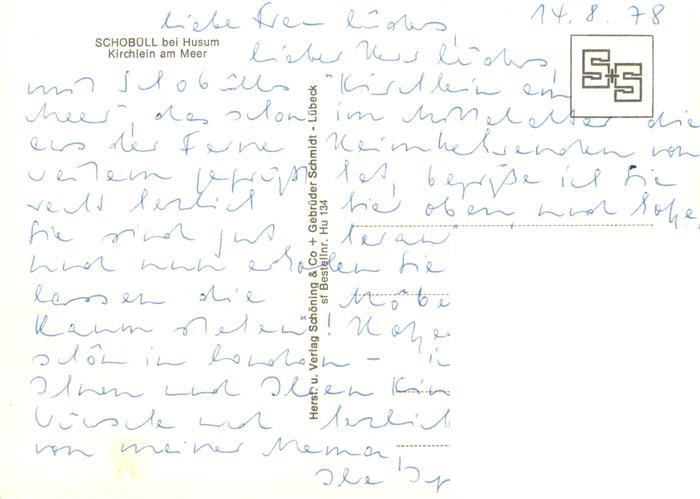 liebe Frau Lüders, 14.8.78
SCHOBÜLL bei Husum
Kirchlein am Meer
lieber Herr Lüders,
S+S
mit Schobülls "Kirchlein am
Meer", das schon im Mittelalter die
aus der Ferne Heimkehrenden von
weitem gegrüßt hat, begrüße ich Sie
recht herzlich hier oben und hoffe,
Sie sind gut heran
und nun erholen Sie
lassen die Möbe
kaum stehen"!
schön in London –
Ihnen und Ihren Kin
Wünsche und herzlich
von meiner Mama,
Ihre
Herst. u. Verlag Schöning & Co + Gebrüder Schmidt - Lübeck
sf Bestellnr. Hu 134